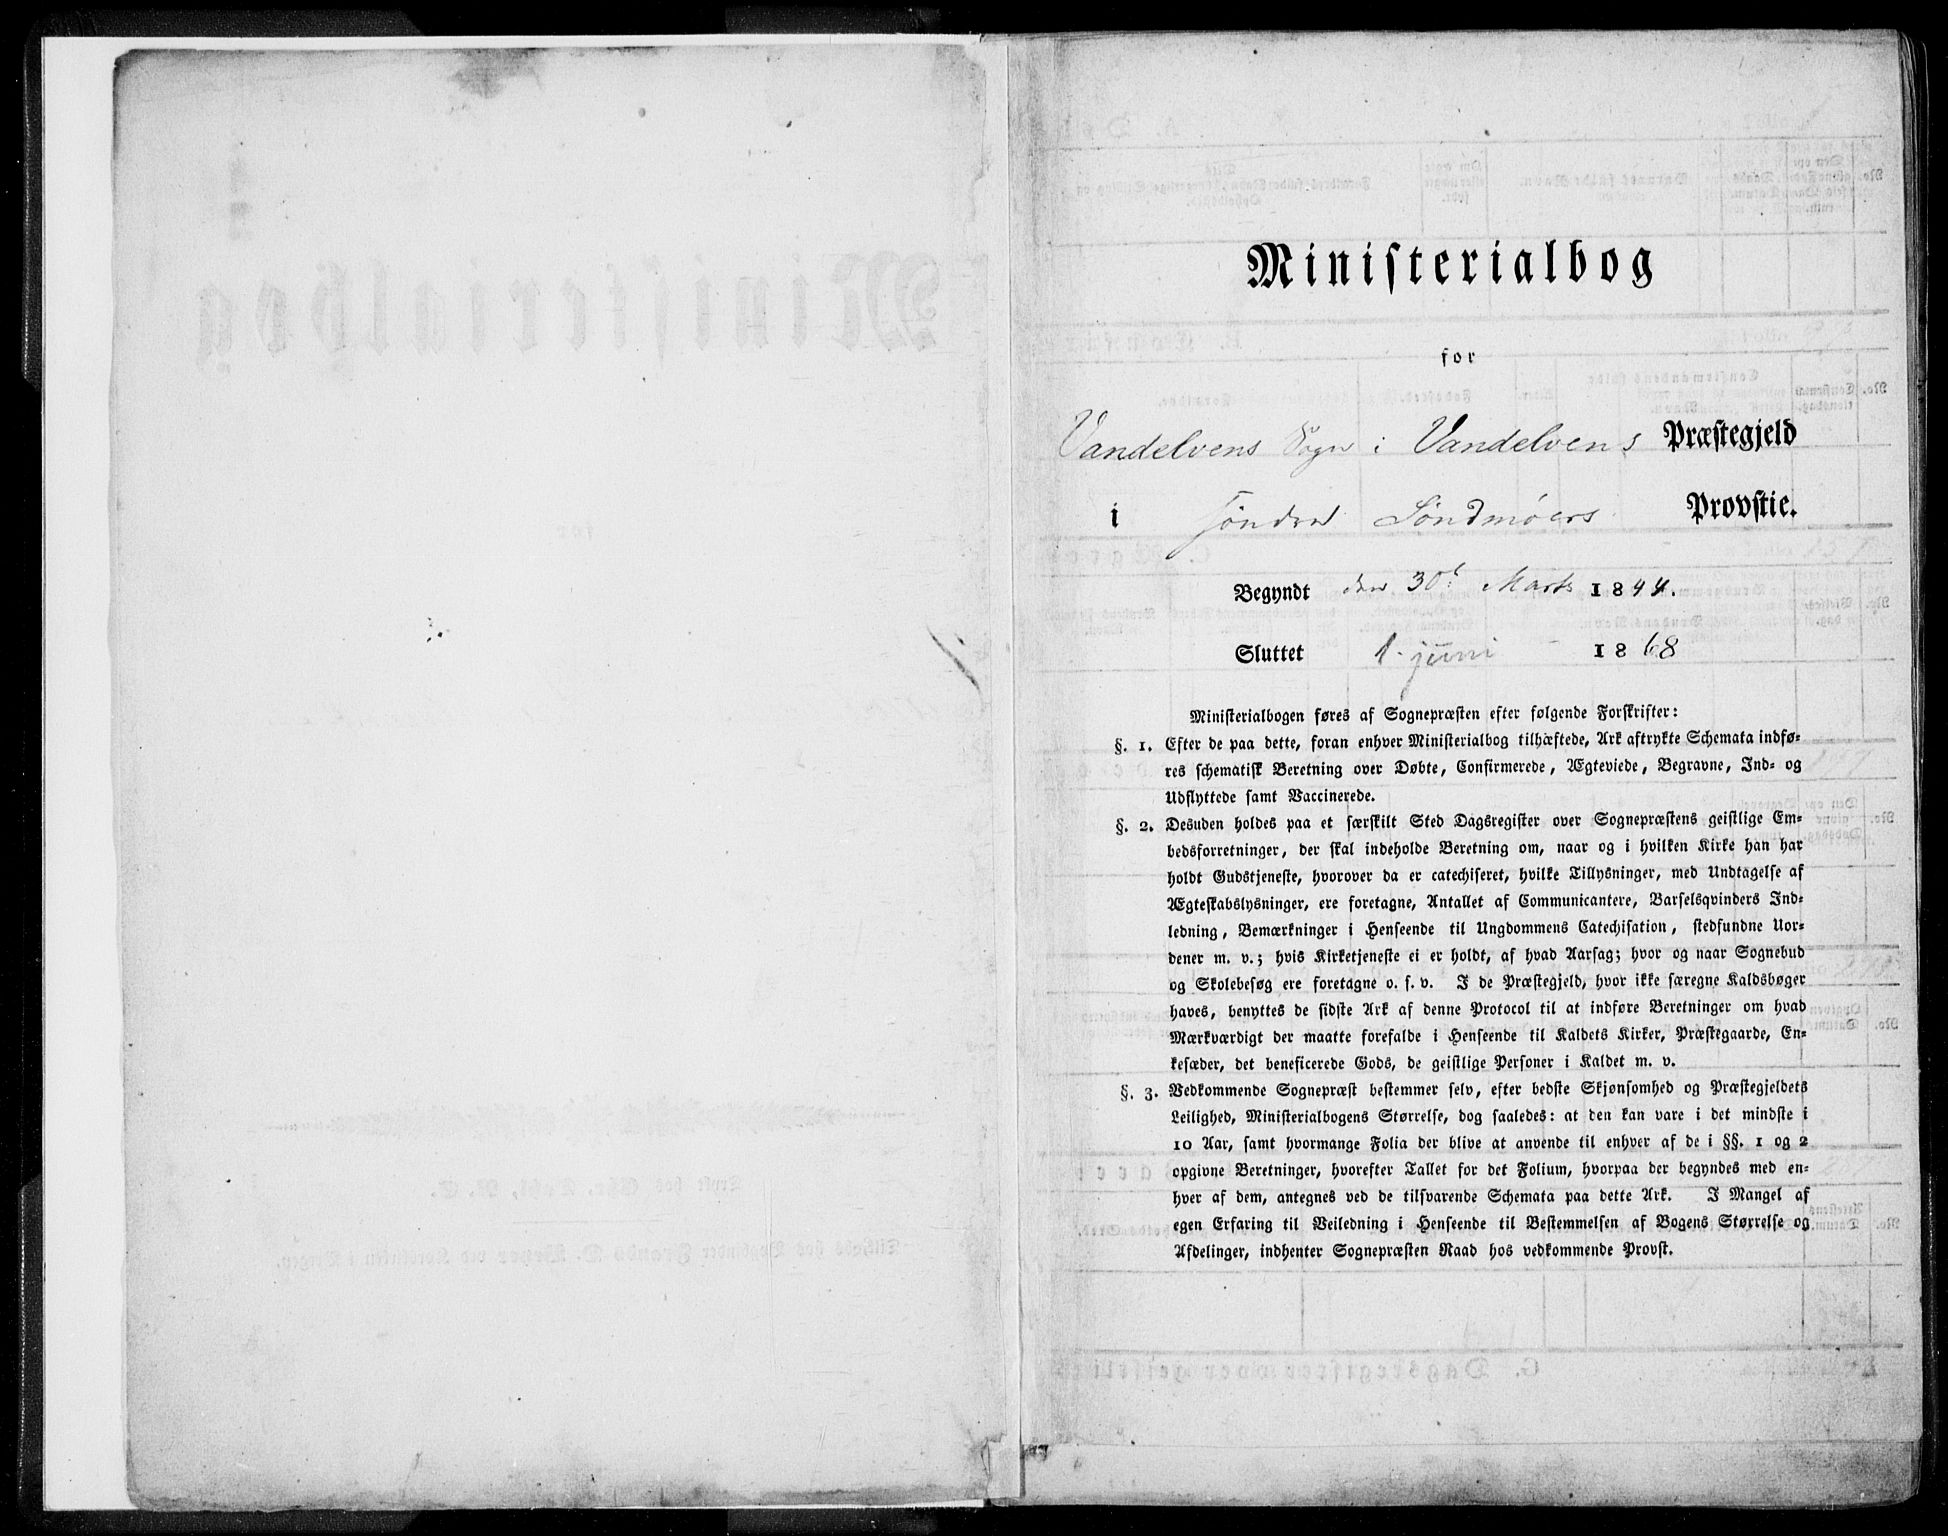 Ministerialbog
for
Vandelvens Sogn i Vandelvens Præstegjeld
i Söndre Söndmöers Provstie.
Begyndt den 30t Marts 1844.
Sluttet 1. juni 1868
Ministerialbogen føres af Sognepræsten efter følgende Forskrifter:
§. 1. Efter de paa dette, foran enhver Ministerialbog tilhæftede, Ark aftrykte Schemata indfø-
res schematisk Beretning over Døbte, Confirmerede, Ægteviede, Begravne, Ind- og
Udflyttede samt Vaccinerede.
§. 2. Desuden holdes paa et særskilt Sted Dagsregister over Sognepræstens geistlige Em-
bedsforretninger, der skal indeholde Beretning om, naar og i hvilken Kirke han har
holdt Gudstjeneste, hvorover da er catechiseret, hvilke Tillysninger, med Undtagelse af
Ægteskabslysninger, ere foretagne, Antallet af Communicantere, Barselsqvinders Ind-
ledning, Bemærkninger i Henseende til Ungdommens Catechisation, stedfundne Uor-
dener m. v.; hvis Kirketjeneste ei er holdt, af hvad Aarsag; hvor og naar Sognebud
og Skolebesøg ere foretagne o. s. v. I de Præstegjeld, hvor ikke særegne Kaldsbøger
haves, benyttes de sidste Ark af denne Protocol til at indføre Beretninger om hvad
Mærkværdigt der maatte forefalde i Henseende til Kaldets Kirker, Præstegaarde, En-
kesæder, det beneficerede Gods, de geistlige Personer i Kaldet m. v.
§. 3. Vedkommende Sognepræst bestemmer selv, efter bedste Skjønsomhed og Præstegjeldets
Leilighed, Ministerialbogens Størrelse, dog saaledes: at den kan vare i det mindste i
10 Aar, samt hvormange Folia der blive at anvende til enhver af de i §§. 1 og 2
opgivne Beretninger, hvorefter Tallet for det Folium, hvorpaa der begyndes med en-
hver af dem, antegnes ved de tilsvarende Schemata paa dette Ark. I Mangel af
egen Erfaring til Veiledning i Henseende til Bestemmelsen af Bogens Størrelse og
Afdelinger, indhenter Sognepræsten Raad hos vedkommende Provst.